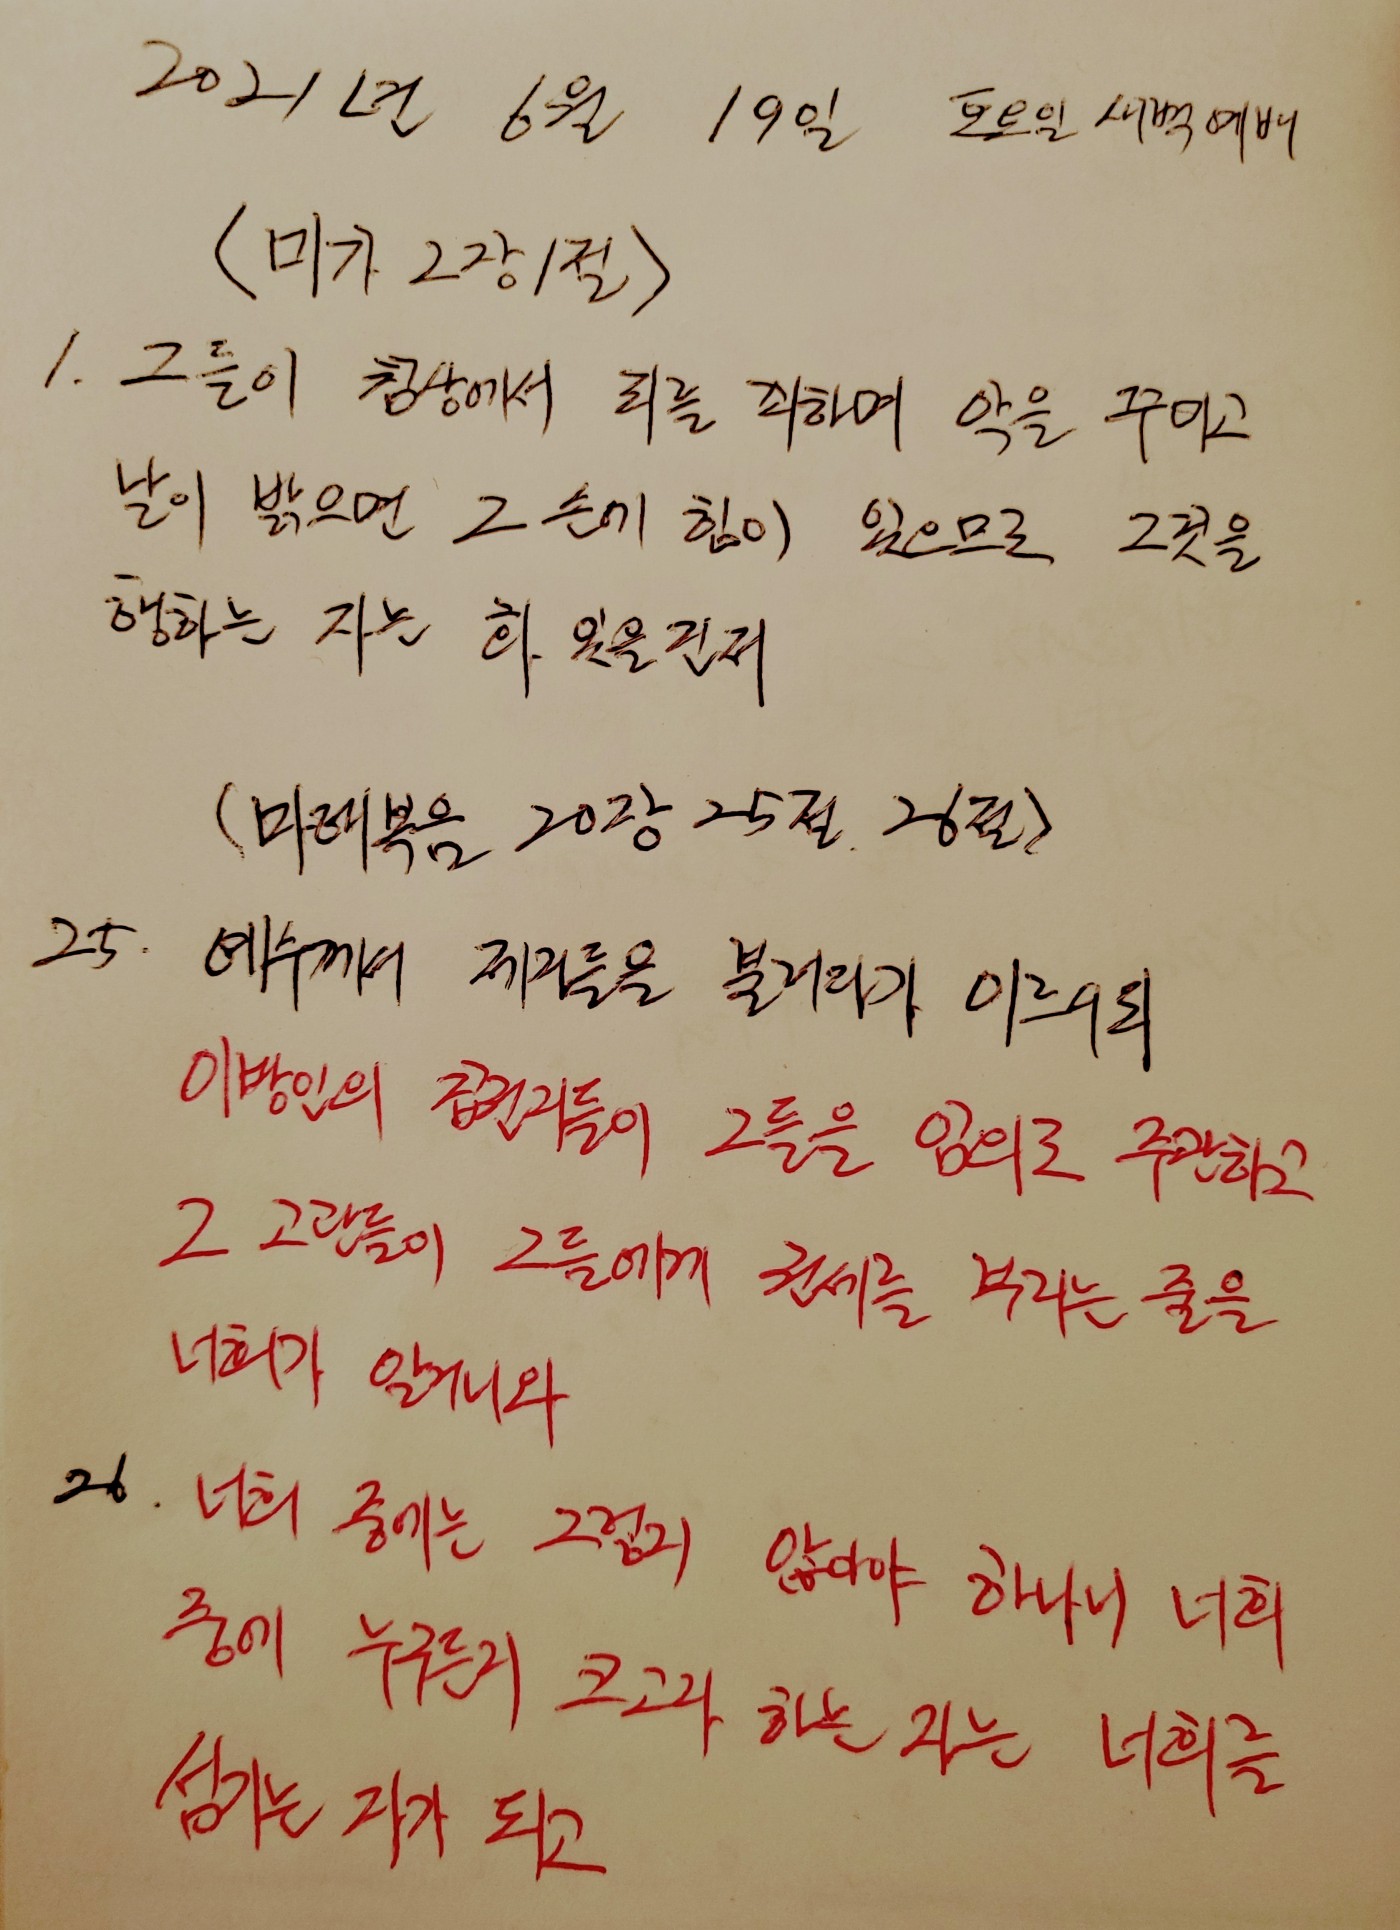 2021년 6월 19일 토요일 새벽예배
<미가 2장 1절>
1. 그들이 침상에서 죄를 꾀하며 악을 꾸미고
날이 밝으면 그 손에 힘이 있으므로 그것을
행하는 자는 화 있을진저
<마태복음 20장 25절. 26절>
25. 예수께서 제자들을 불러다가 이르시되
이방인의 집권자들이 그들을 임의로 주관하고
그 고관들이 그들에게 권세를 부리는 줄을
너희가 알거니와
26. 너희 중에는 그렇지 않아야 하나니 너희
중에 누구든지 크고자 하는 자는 너희를
섬기는 자가 되고